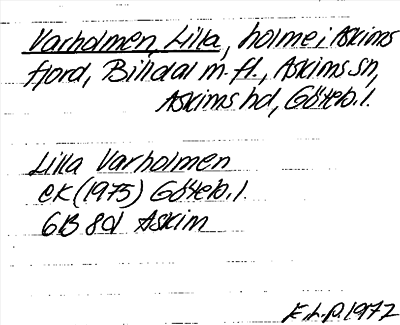 Varholmen, Lilla, holme i Askims
fjord, Billdal m.fl., Askims sn,
Askims hd, Göteb. l.
Lilla Varholmen
ek (1975) Göteb. l.
6B 8d Askim
E.L.P. 1972